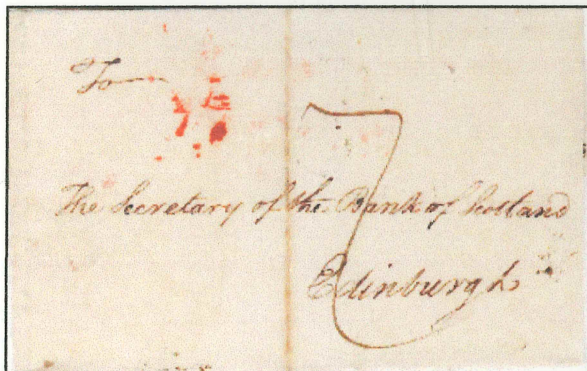 To
7
The Secretary of the Bank of Scotland
Edinburgh